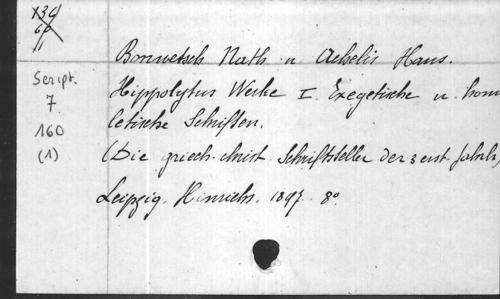 X36
60
11
Script.
7
160
(1)
Bonwetsch Nath u Achelis Hans.
Hippolytus Werke I. Exegetische u. homi
letische Schriften.
(Die griech. christ. Schriftsteller der 3 erst. Jahrh)
Leipzig. Hinrichs. 1897. 8º